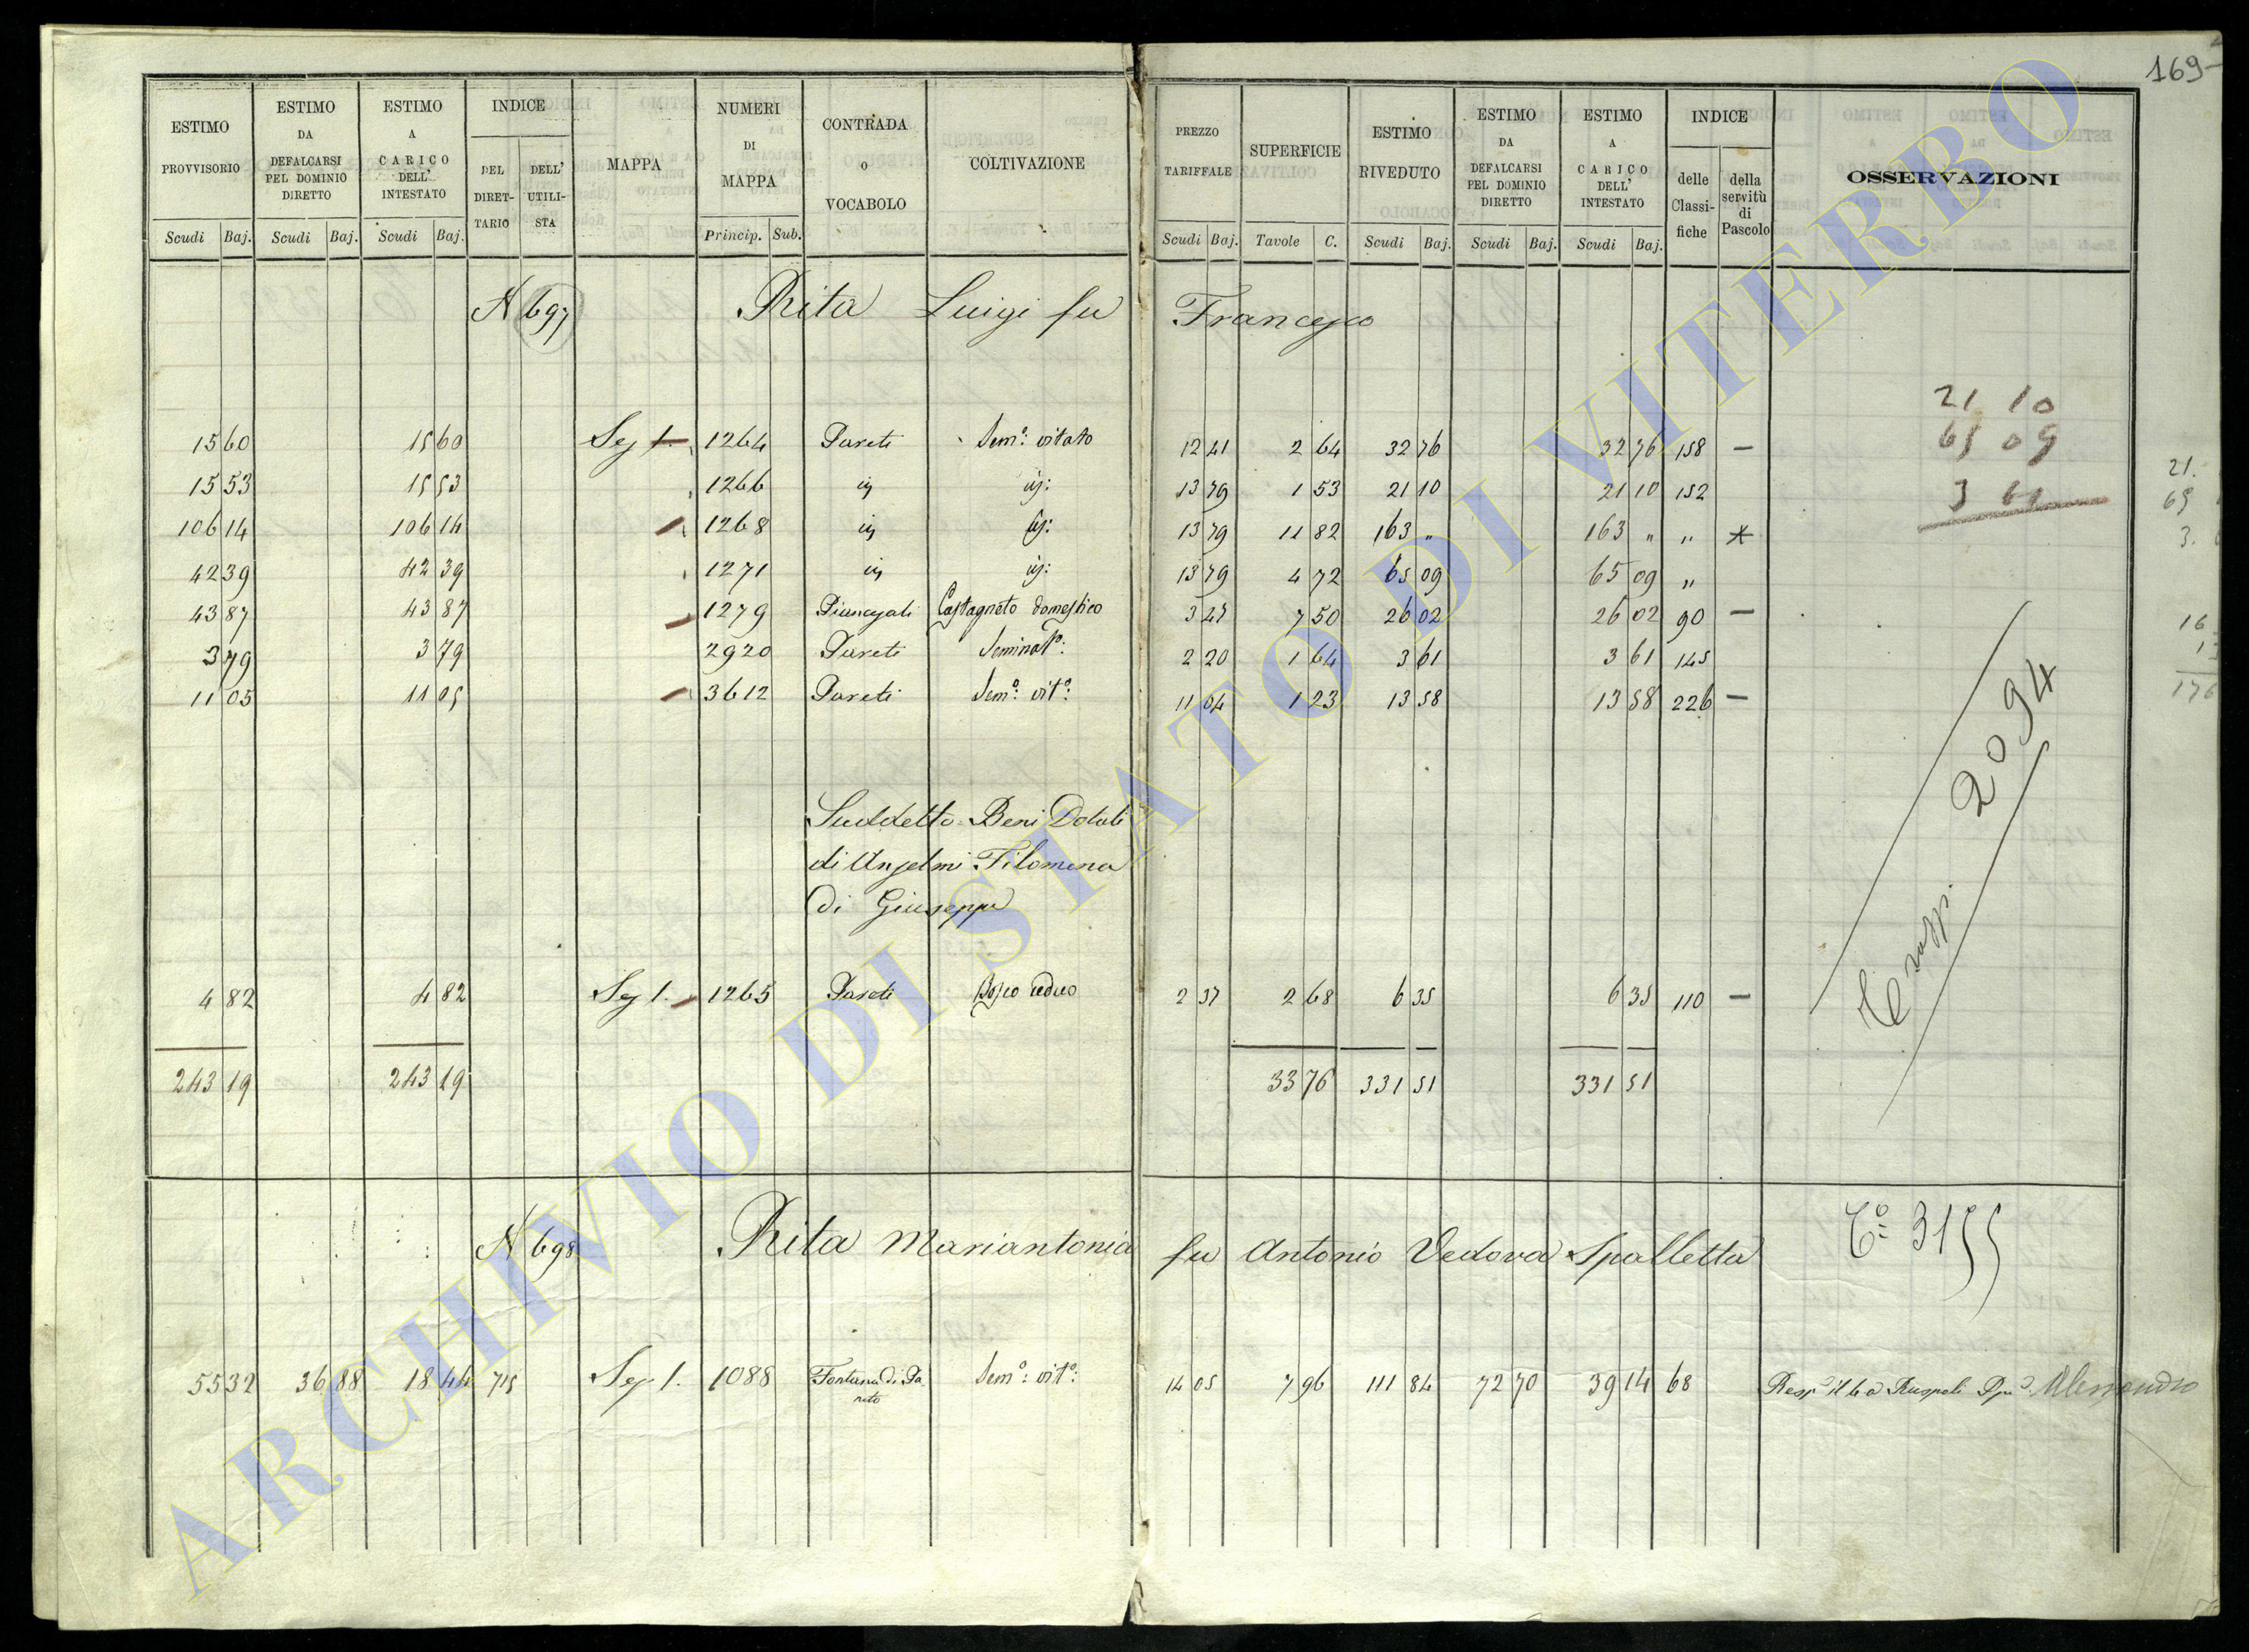 169
ESTIMO PROVVISORIO Scudi Baj. ESTIMO DA DEFALCARSI PEL DOMINIO DIRETTO Scudi Baj. ESTIMO A CARICO DELL' INTESTATO Scudi Baj. INDICE DEL DIRETTARIO DELL' UTILISTA MAPPA NUMERI DI MAPPA Princip. Sub. CONTRADA O VOCABOLO COLTIVAZIONE PREZZO TARIFFALE Scudi Baj. SUPERFICIE Tavole C. ESTIMO RIVEDUTO Scudi Baj. ESTIMO DA DEFALCARSI PEL DOMINIO DIRETTO Scudi Baj. ESTIMO A CARICO DELL' INTESTATO Scudi Baj. INDICE delle Classifiche della servitù di Pascolo OSSERVAZIONI
N 697 Rita Luigi fu Francesco
21 10
65 09
3 61
15 60 15 60 Sez 1. 1264 Pareti Sem.o vitato 12 41 2 64 32 76 32 76 158 —
15 53 15 53 1266 id id: 13 79 1 53 21 10 21 10 152
106 14 106 14 1268 id id: 13 79 11 82 163 " 163 " "
42 39 42 39 1271 id id: 13 79 4 72 65 09 65 09 "
43 87 43 87 1279 Castagneto domestico 3 47 7 50 26 02 26 02 90 —
3 79 3 79 2920 Pareti Seminat.o: 2 20 1 64 3 61 3 61 145
11 05 11 05 3612 Pareti Sem.o: vit.o: 11 04 1 23 13 58 13 58 226 —
2094
Suddetto Beni Dotali
di Anselmi Filomena
di Giuseppe
4 82 4 82 Sez 1. 1265 Pareti Bosco ceduo 2 37 2 68 6 35 6 35 110 —
243 19 243 19 33 76 331 51 331 51
N 698 Rita Mariantonia fu Antonio Vedova Spalletta
C.o 3155
55 32 36 88 18 44 715 Sez 1. 1088 Fontana di Pareto Sem.o: vit.o: 14 05 7 96 111 84 72 70 39 14 68 Ruspoli Alessandro
ARCHIVIO DI STATO DI VITERBO